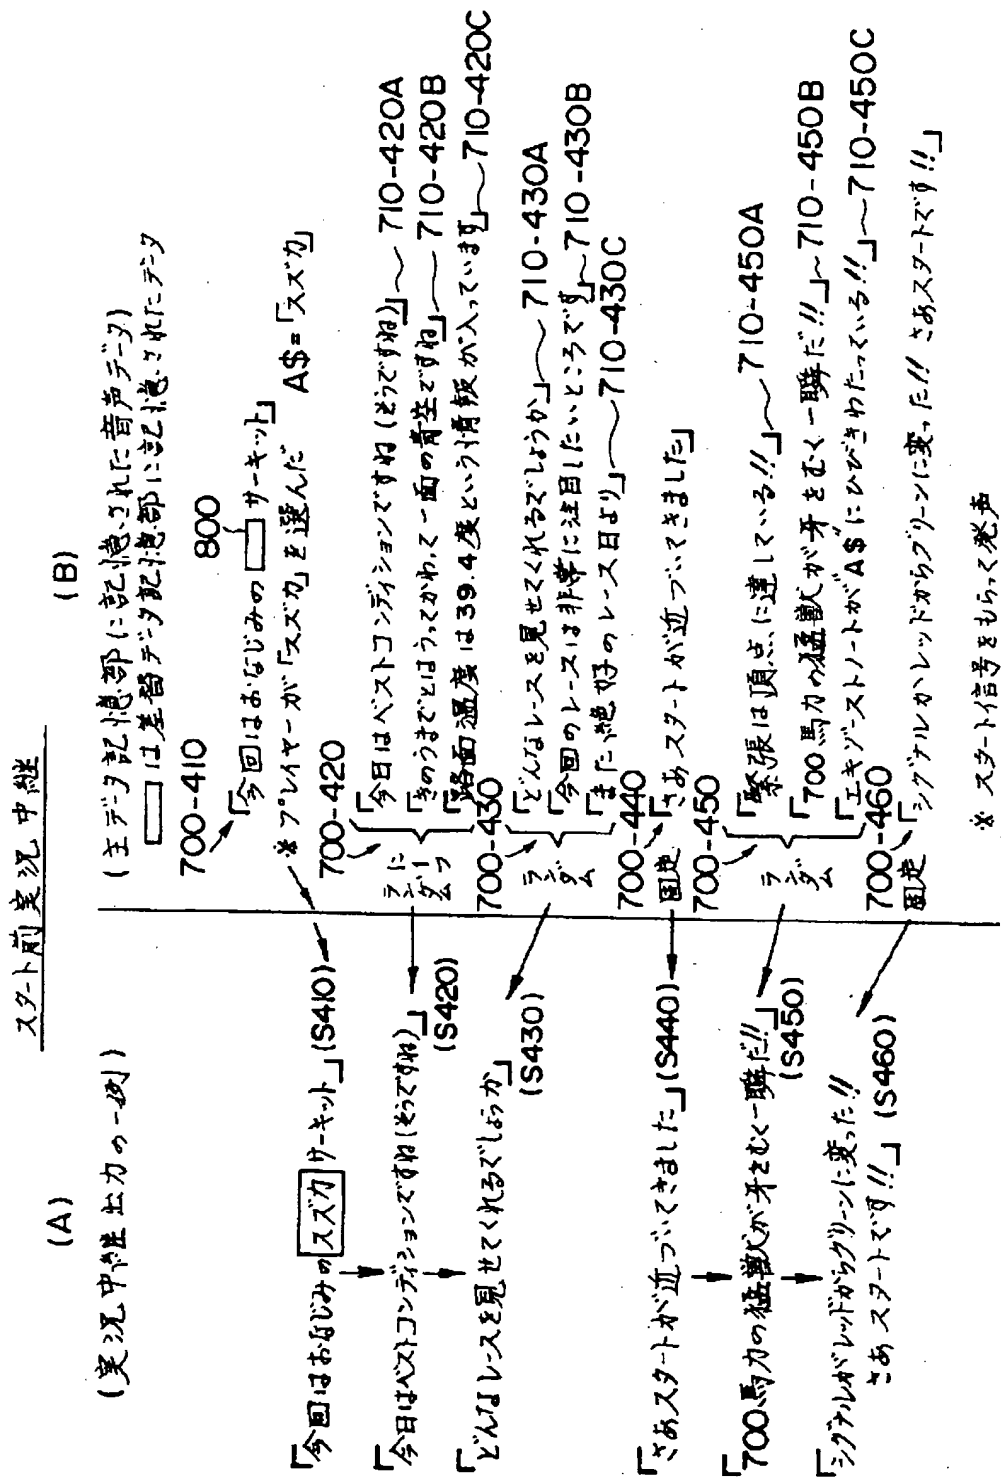 スタート前実況中継
(A)
(実況中継出力の一例)
「今回はおなじみのスズカサーキット」(S410)
「今日はベストコンディションですね(そうですね)」
(S420)
「どんなレースを見せてくれるでしょうか」
(S430)
「さあスタートが近づいてきました」(S440)
「700馬力の猛獣が牙をむく一瞬だ!!」
(S450)
「シグナルがレッドからグリーンに変った!!
さあスタートです!!」(S460)
(B)
(主データ記憶部に記憶された音声データ)
は差替データ記憶部に記憶されたデータ
700-410
800
「今回はおなじみの サーキット」
※プレイヤーが「スズカ」を選んだ A$=「スズカ」
700-420
ランダムに一つ
「今日はベストコンディションですね(そうですね)」〜710-420A
「きのうまでとはうってかわって一面の青空ですね」〜710-420B
「路面温度は39.4度という情報が入っています」〜710-420C
700-430
ランダム
「どんなレースを見せてくれるでしょうか」〜710-430A
「今回のレースは非常に注目したいところです」〜710-430B
「また、絶好のレース日より」〜710-430C
700-440
固定
「さあスタートが近づいてきました」
700-450
ランダム
「緊張は頂点に達している!!」〜710-450A
「700馬力の猛獣が牙をむく一瞬だ!!」〜710-450B
「エキゾーストノートが"A$"にひびきわたっている!!」〜710-450C
700-460
固定
「シグナルがレッドからグリーンに変った!! さあスタートです!!」
※ スタート信号をもらって発声